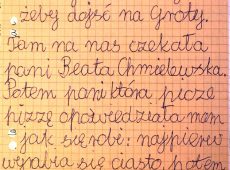 żeby dojść na Groty.
Tam na nas czekała
pani Beata Chmielewska.
Potem pani która piecze
pizzę opowiedziała nam
jak się robi: najpierw
wyrabia się ciasto potem